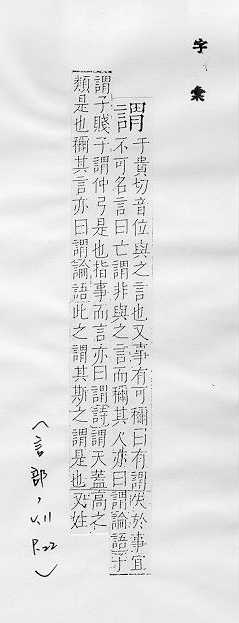 字彙
謂 于貴切音位與之言也又事有可稱曰有謂失於事宜
不可名言曰亡謂非與之言而稱其人亦曰謂論語子
謂子賤子謂仲弓是也指事而言亦曰謂詩謂天蓋高之
類是也稱其言亦曰謂論語此之謂其斯之謂是也又姓
(言部, V.11 P.22)